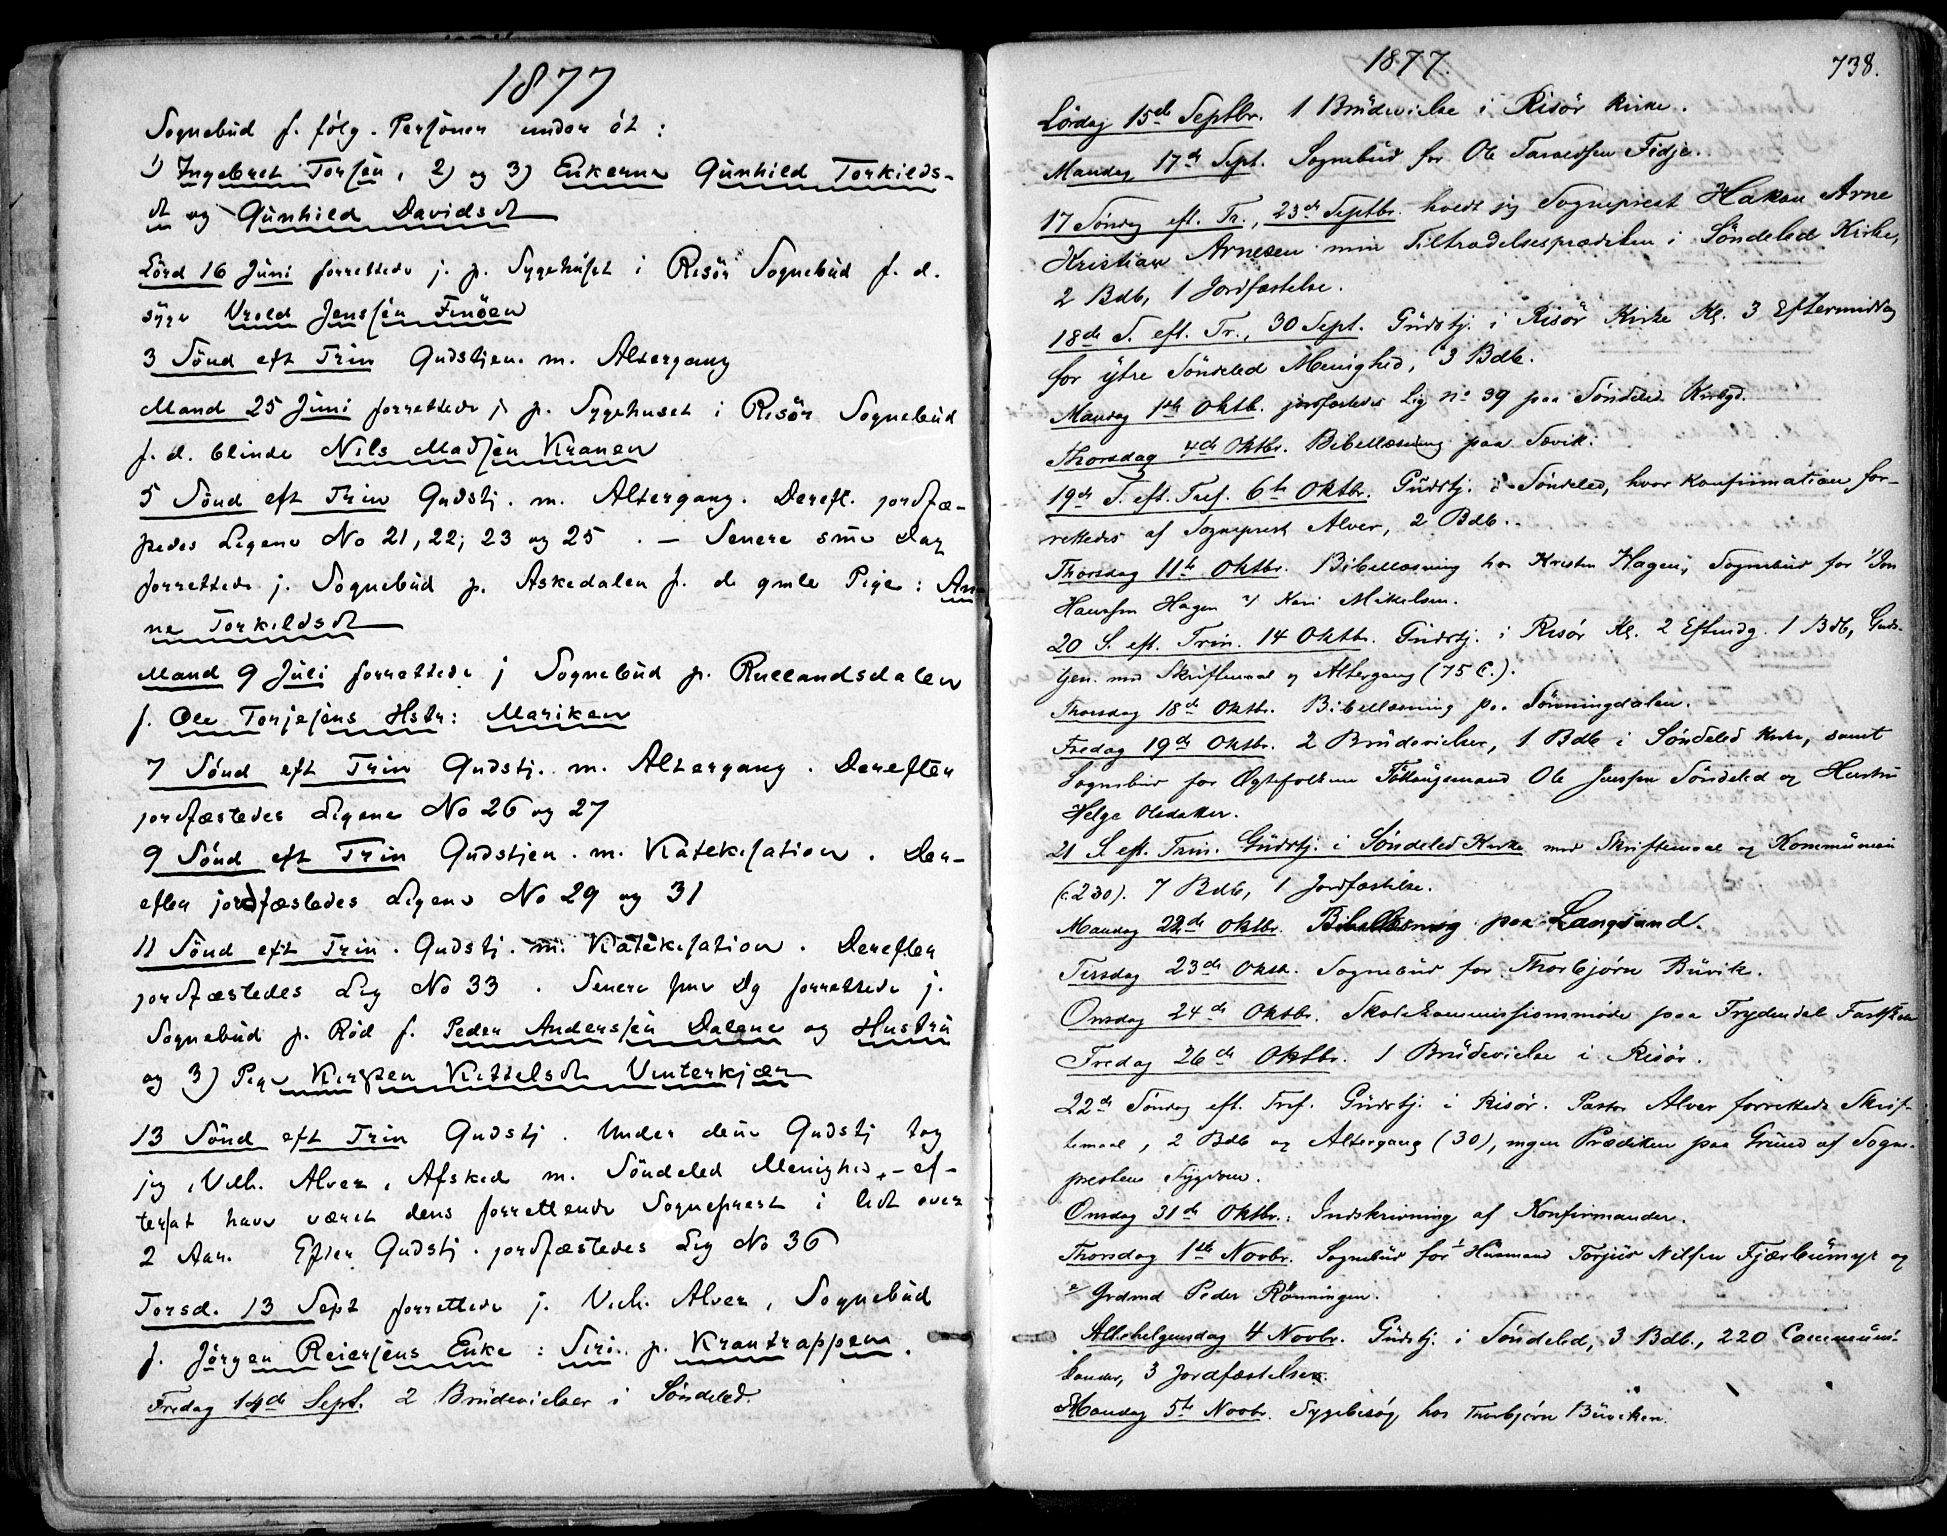 1877
Sognebud f. følg. Personer under ét :
1) Ingebret Torsen, 2) og 3) Enkerne Gunhild Torkilds-
dt og Gunhild Davidsdt
Lörd 16 Juni forrettede j. p. Sygehuset i Risör Sognebud f. d.
syge Vrold Jenssen Finöen
3 Sönd eft Trin Gudstjen. m. Altergang
Mand 25 Juni forrettede j. p. Sygehuset i Risör Sognebud
f. d. blinde Nils Madsen Kranen
5 Sönd eft Trin Gudstj. m. Altergang. Dereft. jordfæ-
stedes Ligene No 21, 22, 23 og 25. — Senere sme Dag
forrettede j. Sognebud p. Askedalen f. d. gmle Pige : An-
ne Torkildsdt
Mand 9 Juli forrettede j Sognebud p. Ruelandsdalen
f. Ole Torjesens Hstr: Mariken
7 Sönd eft Trin Gudstj. m. Altergang. Derefter
jordfæstedes Ligene No 26 og 27
9 Sönd eft Trin Gudstjen. m. Katekisation. Der-
efter jordfæstedes Ligene No 29 og 31
11 Sönd eft Trin. Gudstj. m. Katekisation. Derefter
jordfæstedes Lig No 33. Senere sme Dg forrettede j.
Sognebud p. Röd f. Peder Anderssen Dalene og Hustru
og 3) Pige Kirsten Kittelsdt Vinterkjær
13 Sönd eft Trin Gudstj. Under dene Gudstj tog
jeg, Vilh. Alver, Afsked m. Söndeled Menighed, - ef-
terat have været dens forrettende Sogneprest i lidt over
2 Aar. Efter Gudstj. jordfæstedes Lig No 36
Torsd. 13 Sept forrettede j. Vilh. Alver, Sognebud
f. Jörgen Reiersens Enke : Siri p. Krantrappen.
Fredag 14de Sept. 2 Brudevielser i Söndeled.
1877. 738.
Lördag 15de Septbr. 1 Brudevielse i Risör Kirke.
Mandag 17de Sept. Sognebud for Ole Taraldsen Fidje.
17 Söndag eft. Tr., 23de Septbr. holdt jeg Sogneprest Hakon Arne
Kristian Arnesen min Tiltrædelsesprædiken i Söndeled Kirke,
2 Bdb, 1 Jordfæstelse.
18de S. eft. Tr., 30 Sept. Gudstj. i Risör Kirke Kl. 3 Eftermiddag
for ytre Söndeled Menighed, 3 Bdb.
Mandag 1ste Oktb. jordfæstedes Lig no 39 paa Söndeled Kirkgd.
Thorsdag 4de Oktbr. Bibellæsning paa Sævik.
19de S. eft. Tref. 6te Oktbr. Gudstj. i Söndeled, hvor Konfirmation for-
rettedes af Sogneprest Alver, 2 Bdb.
Thorsdag 11te Oktbr. Bibellæsning hos Kristen Hagen, Sognebud for 1/ Jon
Hansen Hagen 2/ Kari Mikelsen.
20 S. eft. Trin. 14 Oktbr. Gudstj. i Risör Kl. 2 Eftmdg. 1 Bdb, Guds-
tjen. med Skriftemaal og Altergang (75 C.).
Thorsdag 18de Oktbr. Bibellæsning paa Sönningdalen.
Fredag 19de Oktbr. 2 Brudevielser, 1 Bdb i Söndeled Kirke, samt
Sognebud for Ægtefolkene Ole Jenssen Söndeled og Hustru
Helge Olsdatter.
21 S. eft. Trin. Gudstj. i Söndeled Kirke med Skriftemaal og Kommunion
(c. 230). 7 Bdb, 1 Jordfæstelse.
Mandag 22de Oktbr. Bibellæsning paa Langsund.
Tirsdag 23de Oktbr. Sognebud for Thorbjørn Buvik.
Onsdag 24de Oktbr. Skolekommissionsmøde paa Frydendal
Fredag 26de Oktbr. 1 Brudevielse i Risör.
22de Söndag eft. Tref. Gudstj. i Risör. Pastor Alver forrettede Skrif-
temaal, 2 Bdb og Altergang (30), ingen Prædiken paa Grund af Sogne-
prestens Sygdom.
Onsdag 31de Oktbr.: Indskrivning af Konfirmander.
Thorsdag 1ste Novbr. Sognebud for 1/ Husmand Torjus Nilsen Fjærbumyr og
2/ Grdmd Peder Rönningen.
Allehelgensdag 4 Novbr. Gudstj. i Söndeled, 3 Bdb., 220 Communi-
kander, 3 Jordfæstelser.
Mandag 5te Novbr. Sygebesøg hos Thorbjørn Buviken.